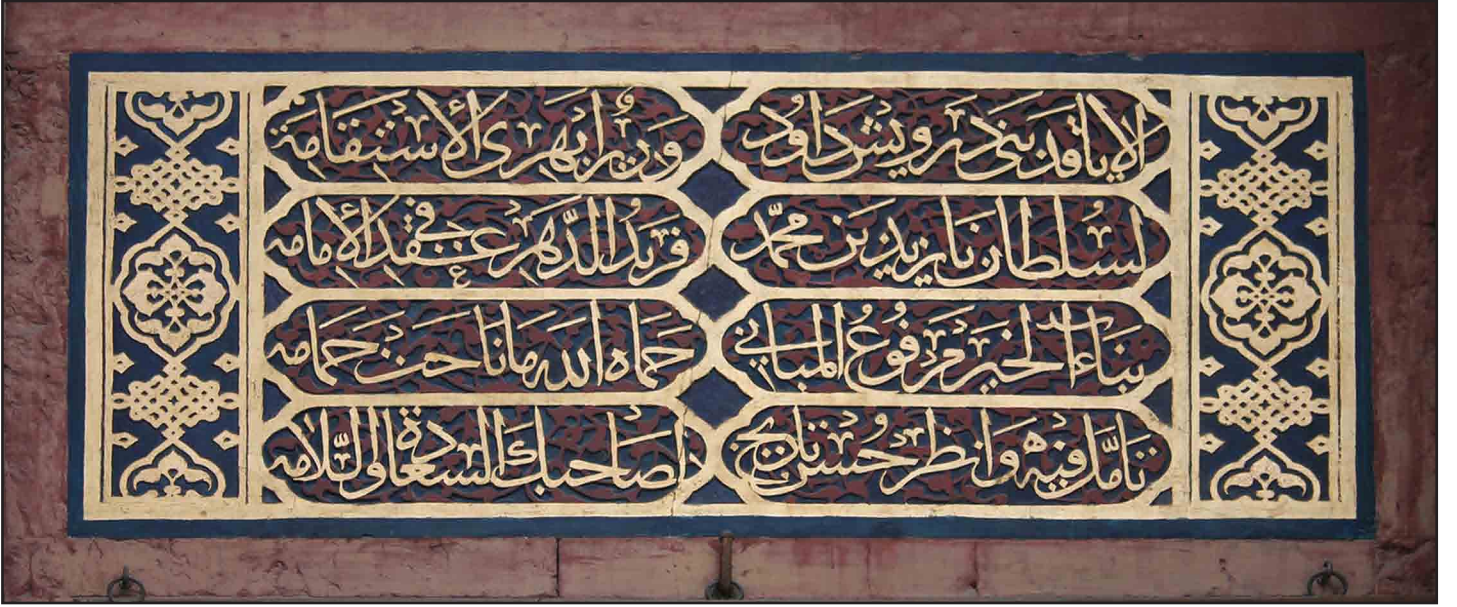 ألا يا قد بنى درويش داود وزير ابهرى الأستقامة
لسلطان بايزيد بن محمد فريد الدهر في عقد الأمامه
بناء الخير مرفوع المباني حماه الله ما ناحت حمامه
تأمل فيه وانظر حسن تاريخ لصاحبك السعادة والسلامه